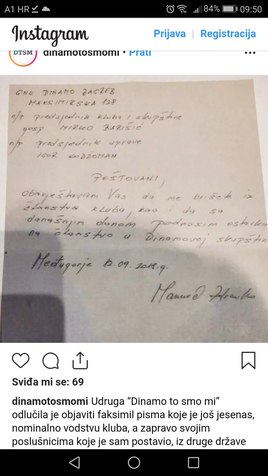 A1 HR
84%
09:50
Instagram
Prijava | Registracija
DTSM
dinamotosmomi • Prati
GNK DINAMO ZAGREB
MAKSIMIRSKA 128
n/r predsjednik kluba i skupštine
gosp MIRKO BARIŠIĆ
n/r predsjednik uprave
IGOR KODŽOMAN
POŠTOVANI,
obavještavam Vas da me brišete iz
članstva kluba, kao i da sa
današnjim danom podnosim ostavku
na članstvo u Dinamovoj skupštini
Međugorje 12.09.2018.g.
Sviđa mi se: 69
dinamotosmomi Udruga "Dinamo to smo mi"
odlučila je objaviti faksimil pisma koje je još jesenas,
nominalno vodstvu kluba, a zapravo svojim
poslušnicima koje je sam postavio, iz druge države